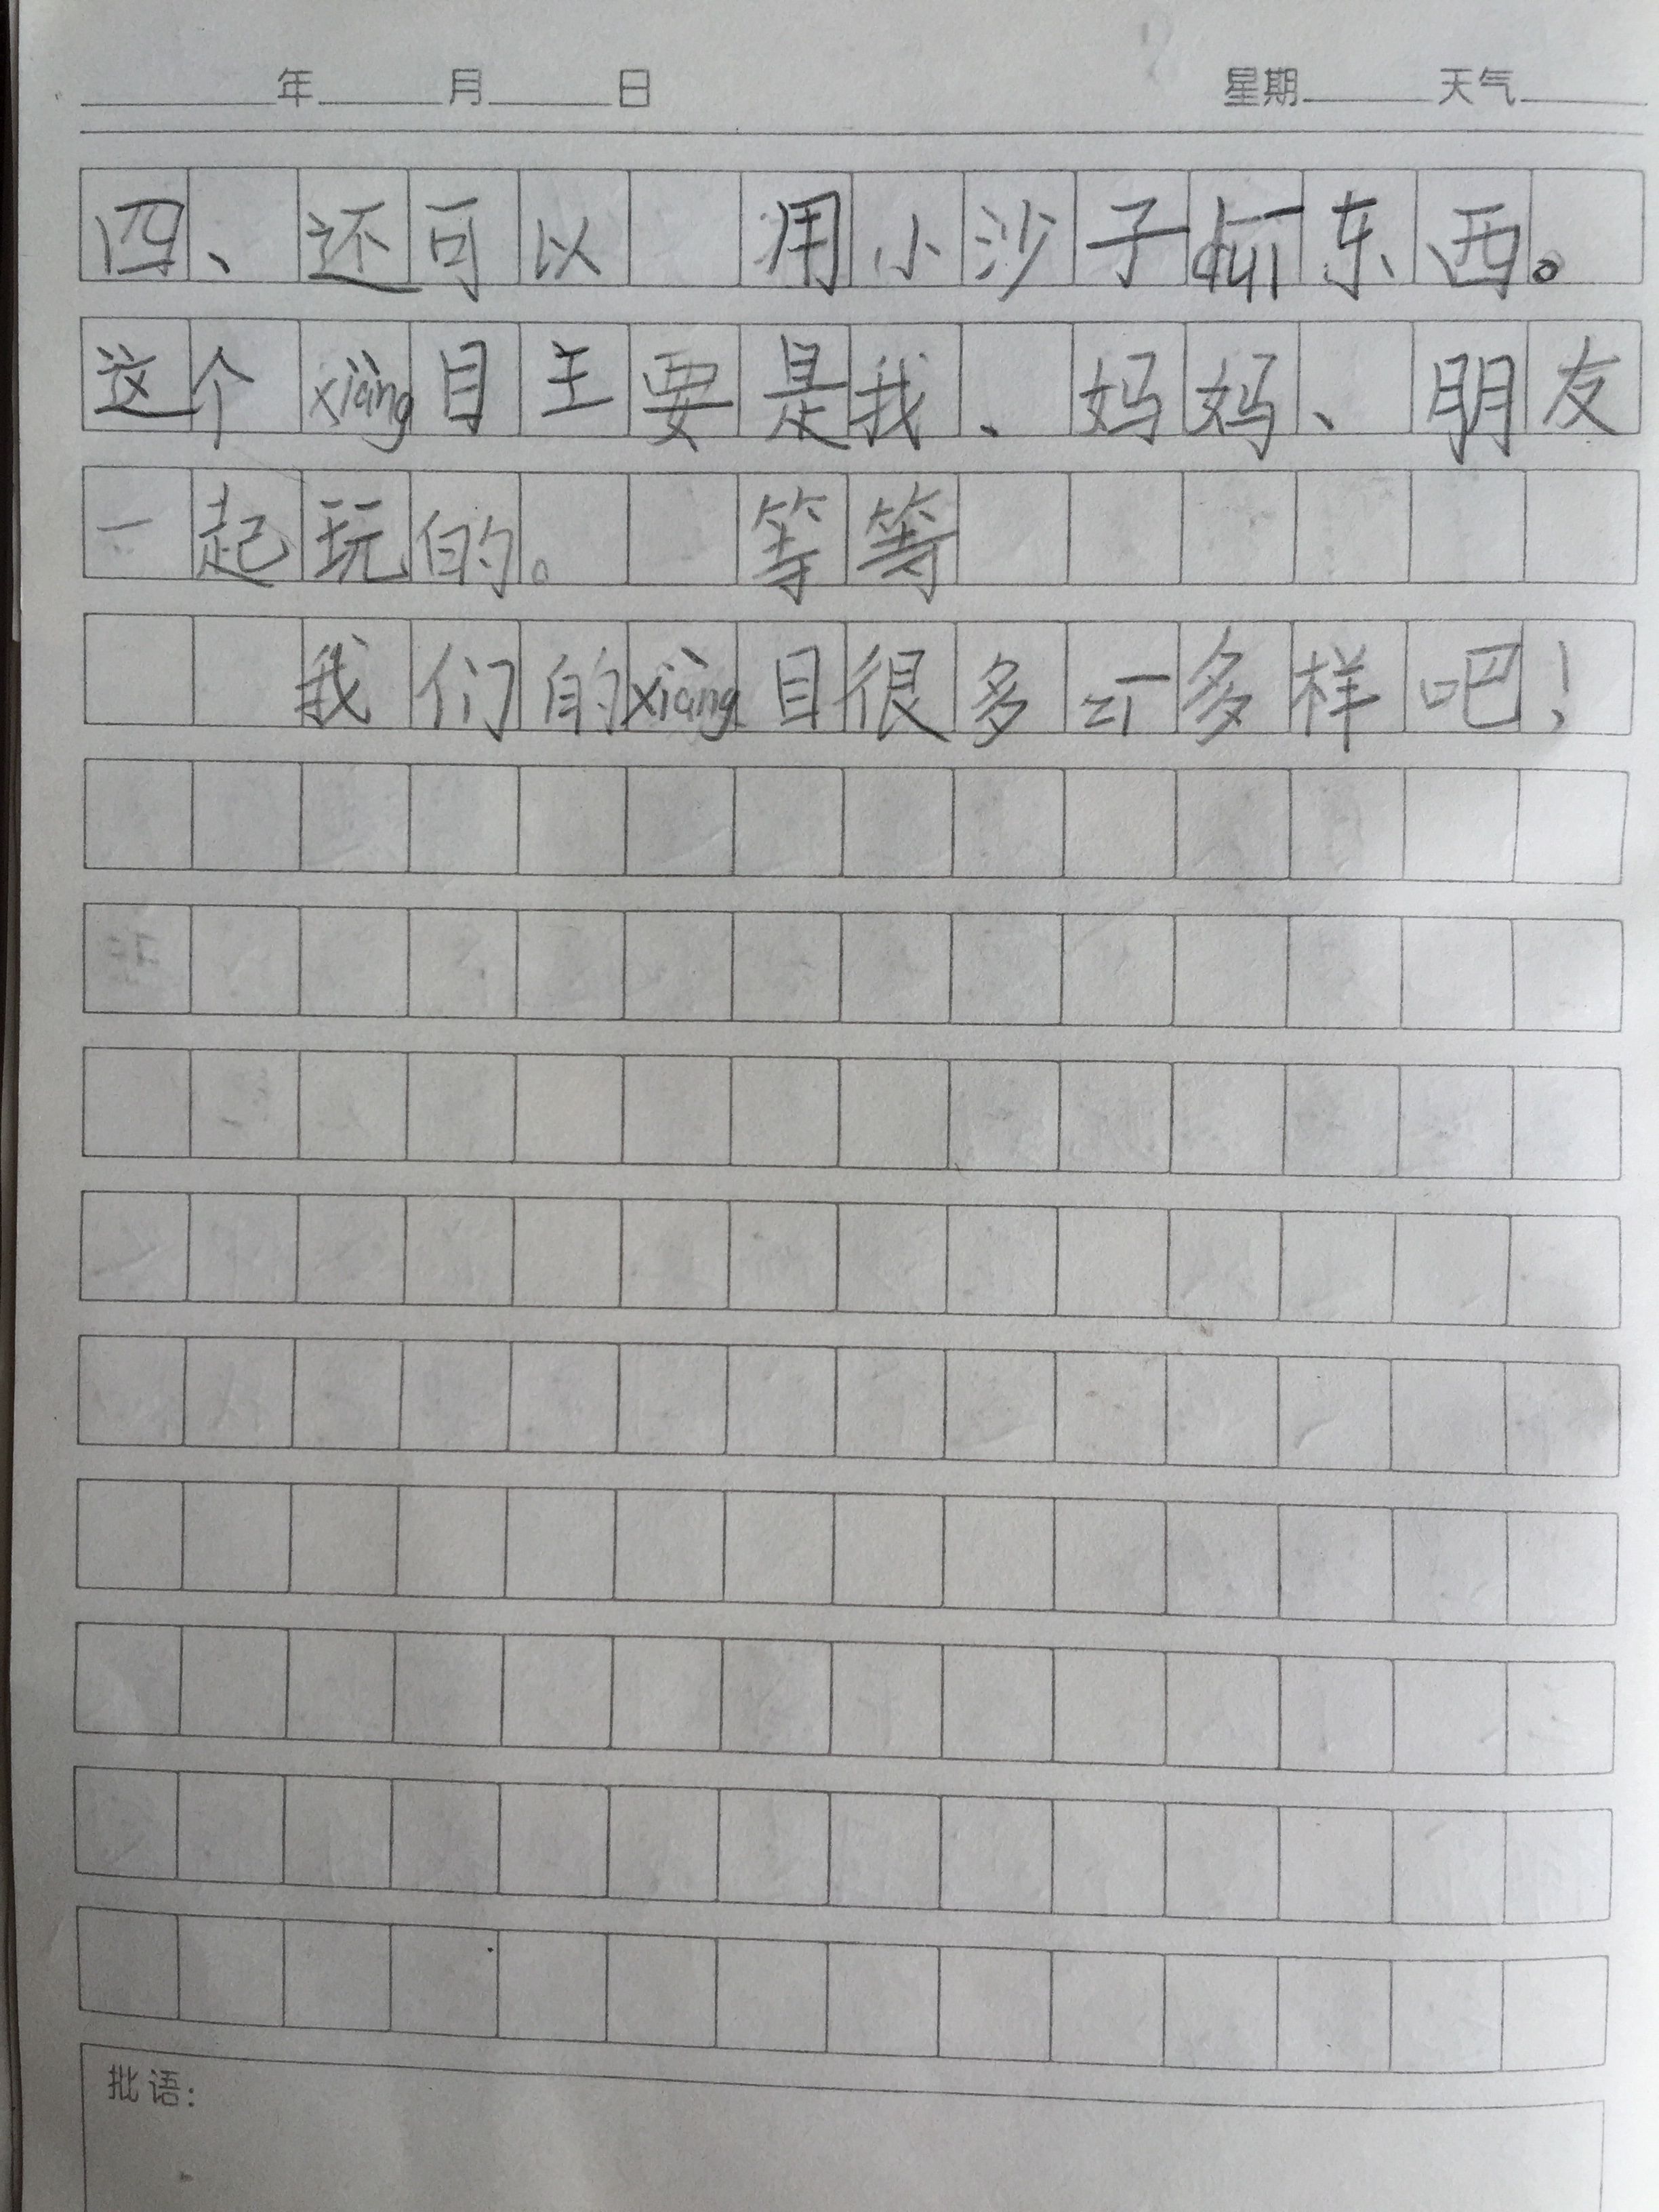 年 月 日 星期 天气
四、还可以 用小沙子duī东西。
这个xiàng目主要是我、妈妈、朋友
一起玩的。 等等
我们的xiàng目很多zī多样吧！
批语：